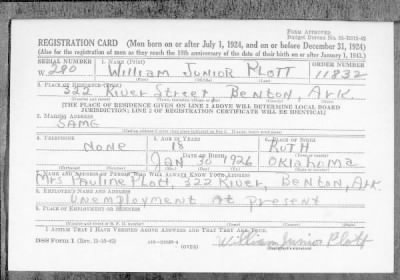 FORM APPROVED
REGISTRATION CARD (Men born on or after July 1, 1924, and on or before December 31, 1924)
(Also for the registration of men as they reach the 18th anniversary of the date of their birth on or after January 1, 1943.)
SERIAL NUMBER 1. NAME (Print) ORDER NUMBER
W 280 William Junior Plott 11832
2. PLACE OF RESIDENCE (Print)
322 River Street Benton, Ark.
[THE PLACE OF RESIDENCE GIVEN ON LINE 2 ABOVE WILL DETERMINE LOCAL BOARD
JURISDICTION; LINE 2 OF REGISTRATION CERTIFICATE WILL BE IDENTICAL]
3. MAILING ADDRESS
SAME
4. TELEPHONE 5. AGE IN YEARS 6. PLACE OF BIRTH
None 18 Ruth
DATE OF BIRTH
Jan 30 1926 Oklahoma
7. NAME AND ADDRESS OF PERSON WHO WILL ALWAYS KNOW YOUR ADDRESS
Mrs Pauline Plott, 322 River, Benton, Ark.
8. EMPLOYER'S NAME AND ADDRESS
Unemployment At Present
9. PLACE OF EMPLOYMENT OR BUSINESS
I AFFIRM THAT I HAVE VERIFIED ABOVE ANSWERS AND THAT THEY ARE TRUE.
DSS Form 1 (OVER) William Junior Plott